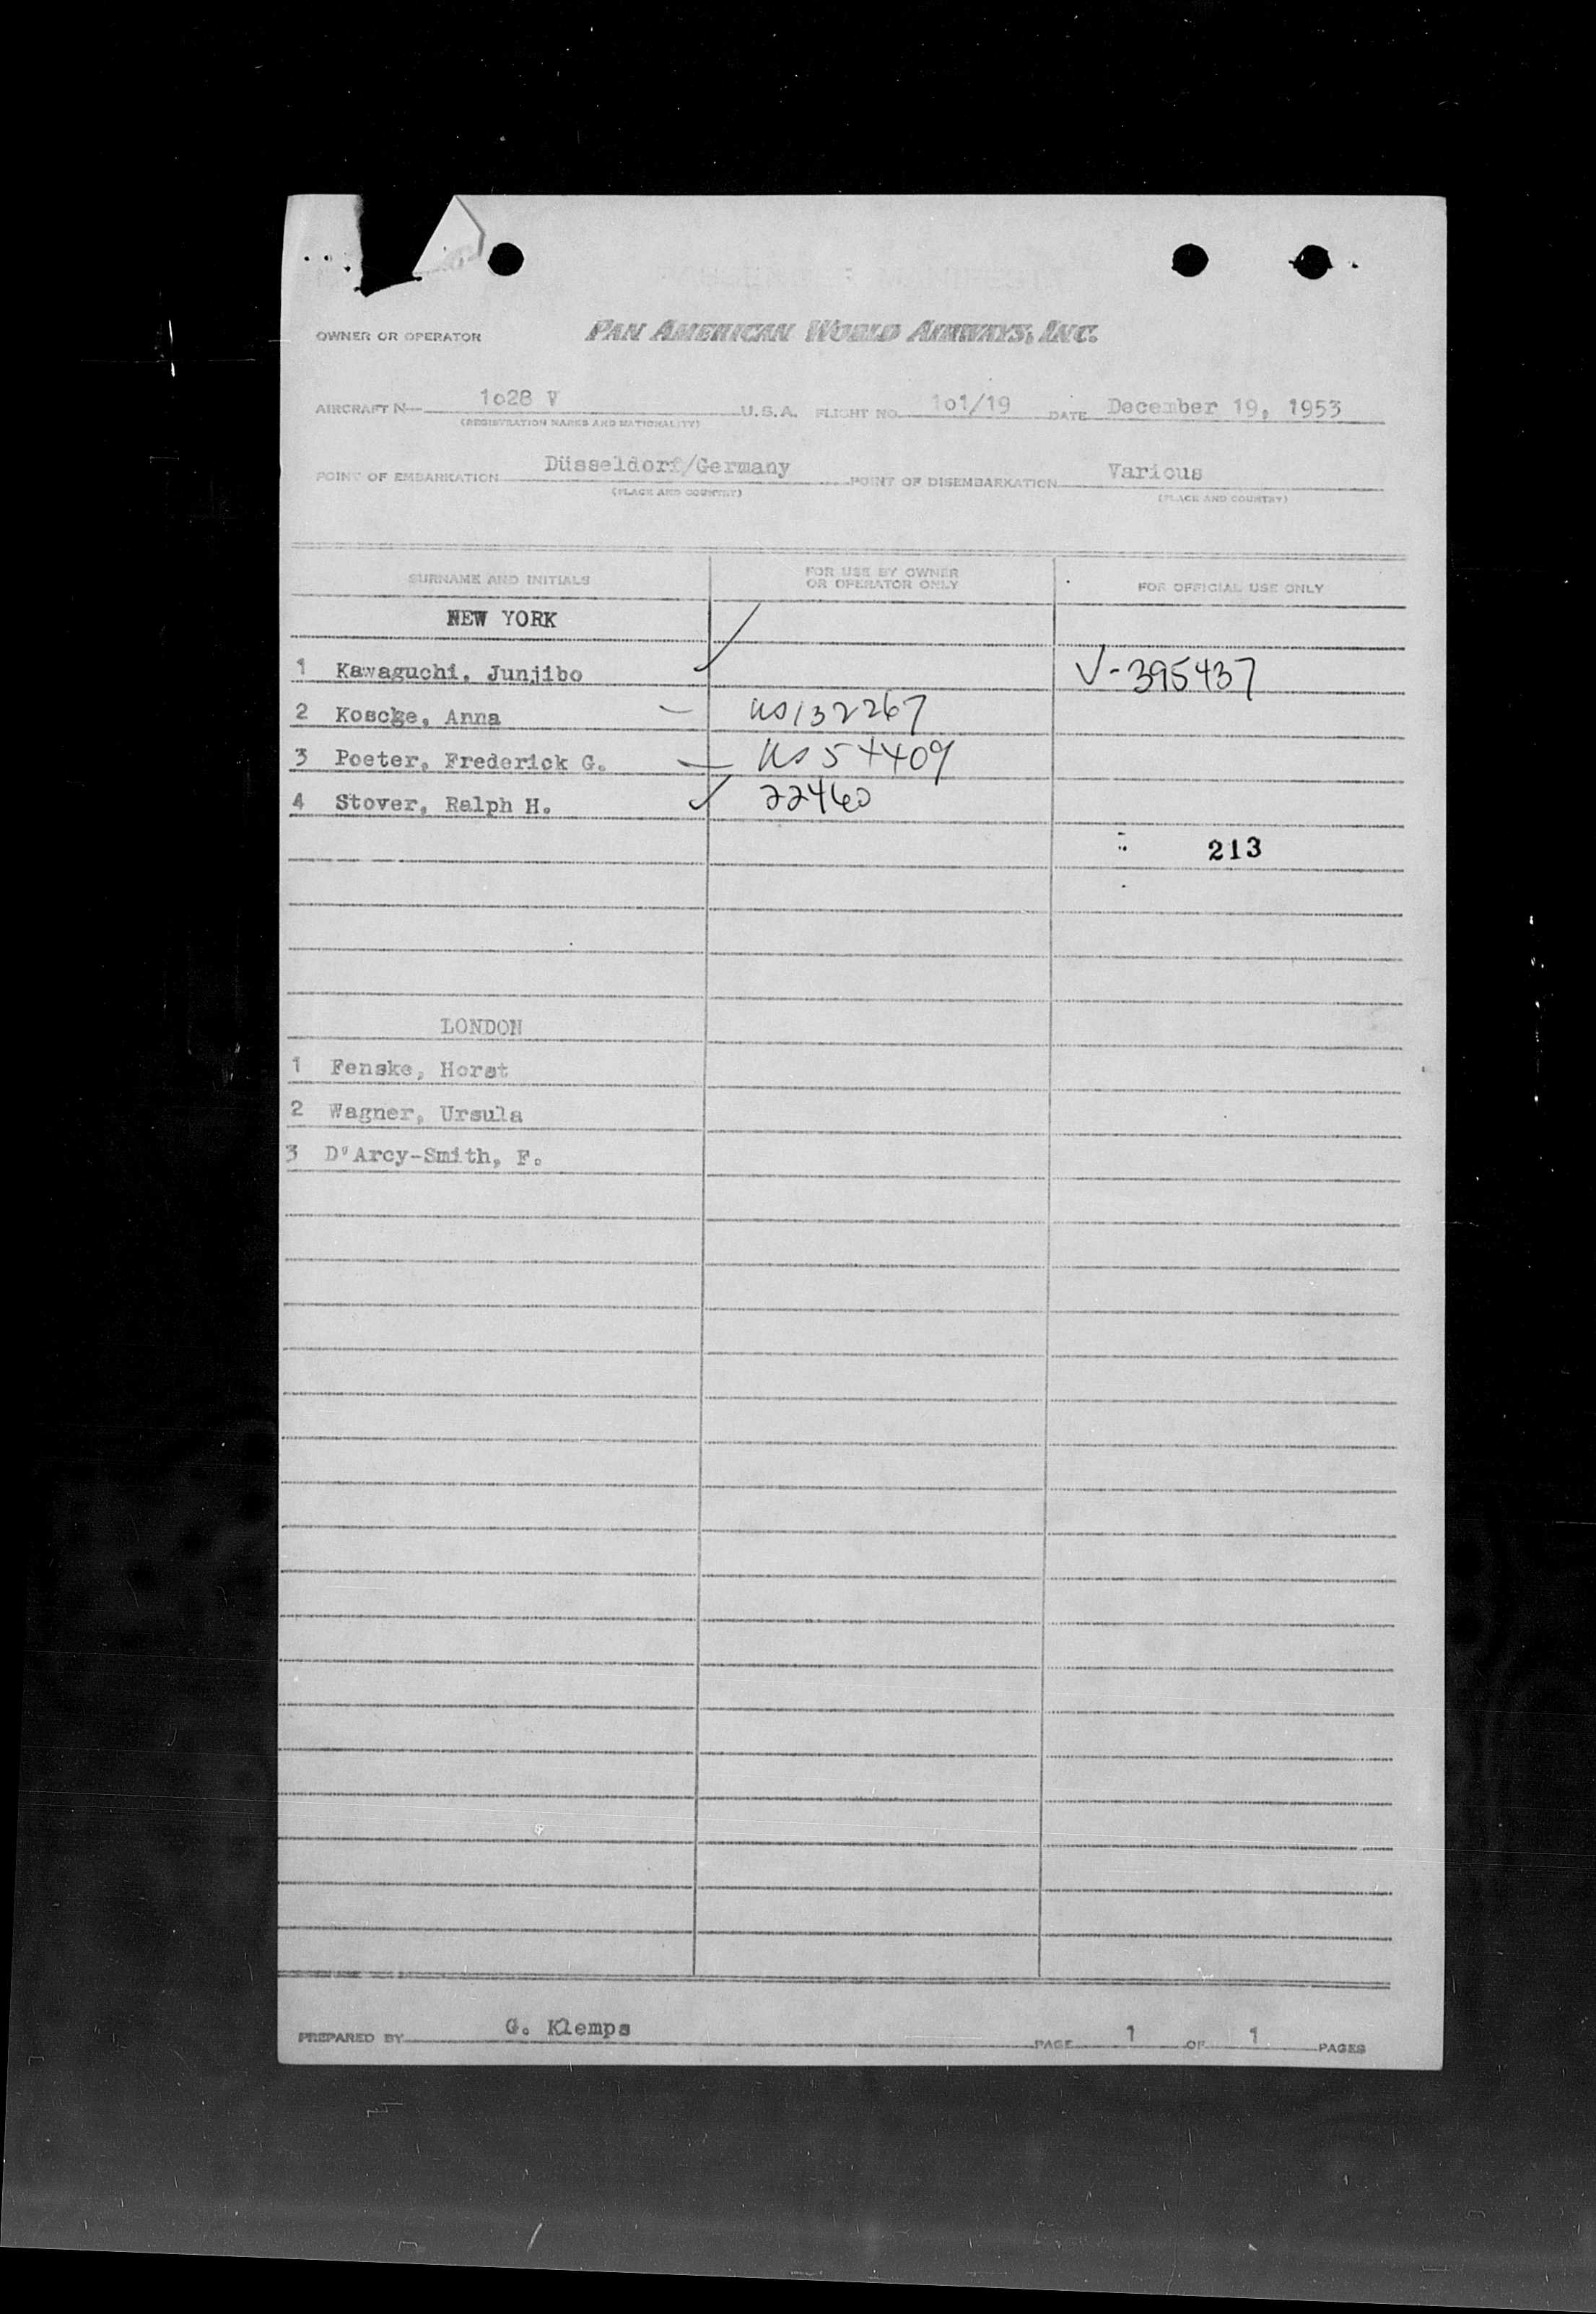 OWNER OR OPERATOR PAN AMERICAN WORLD AIRWAYS, INC.
AIRCRAFT N 1o28 V U.S.A. FLIGHT NO. 1o1/19 DATE December 19, 1953
(REGISTRATION MARKS AND NATIONALITY)
POINT OF EMBARKATION Düsseldorf/Germany POINT OF DISEMBARKATION Various
(PLACE AND COUNTRY) (PLACE AND COUNTRY)
SURNAME AND INITIALS FOR USE BY OWNER OR OPERATOR ONLY FOR OFFICIAL USE ONLY
NEW YORK
1 Kawaguchi, Junjibo V-395437
2 Koscke, Anna US132267
3 Poeter, Frederick G. US
4 Stover, Ralph H. 22460
213
LONDON
1 Fenske, Horst
2 Wagner, Ursula
3 D'Arcy-Smith, F.
PREPARED BY G. Klemps PAGE 1 OF 1 PAGES